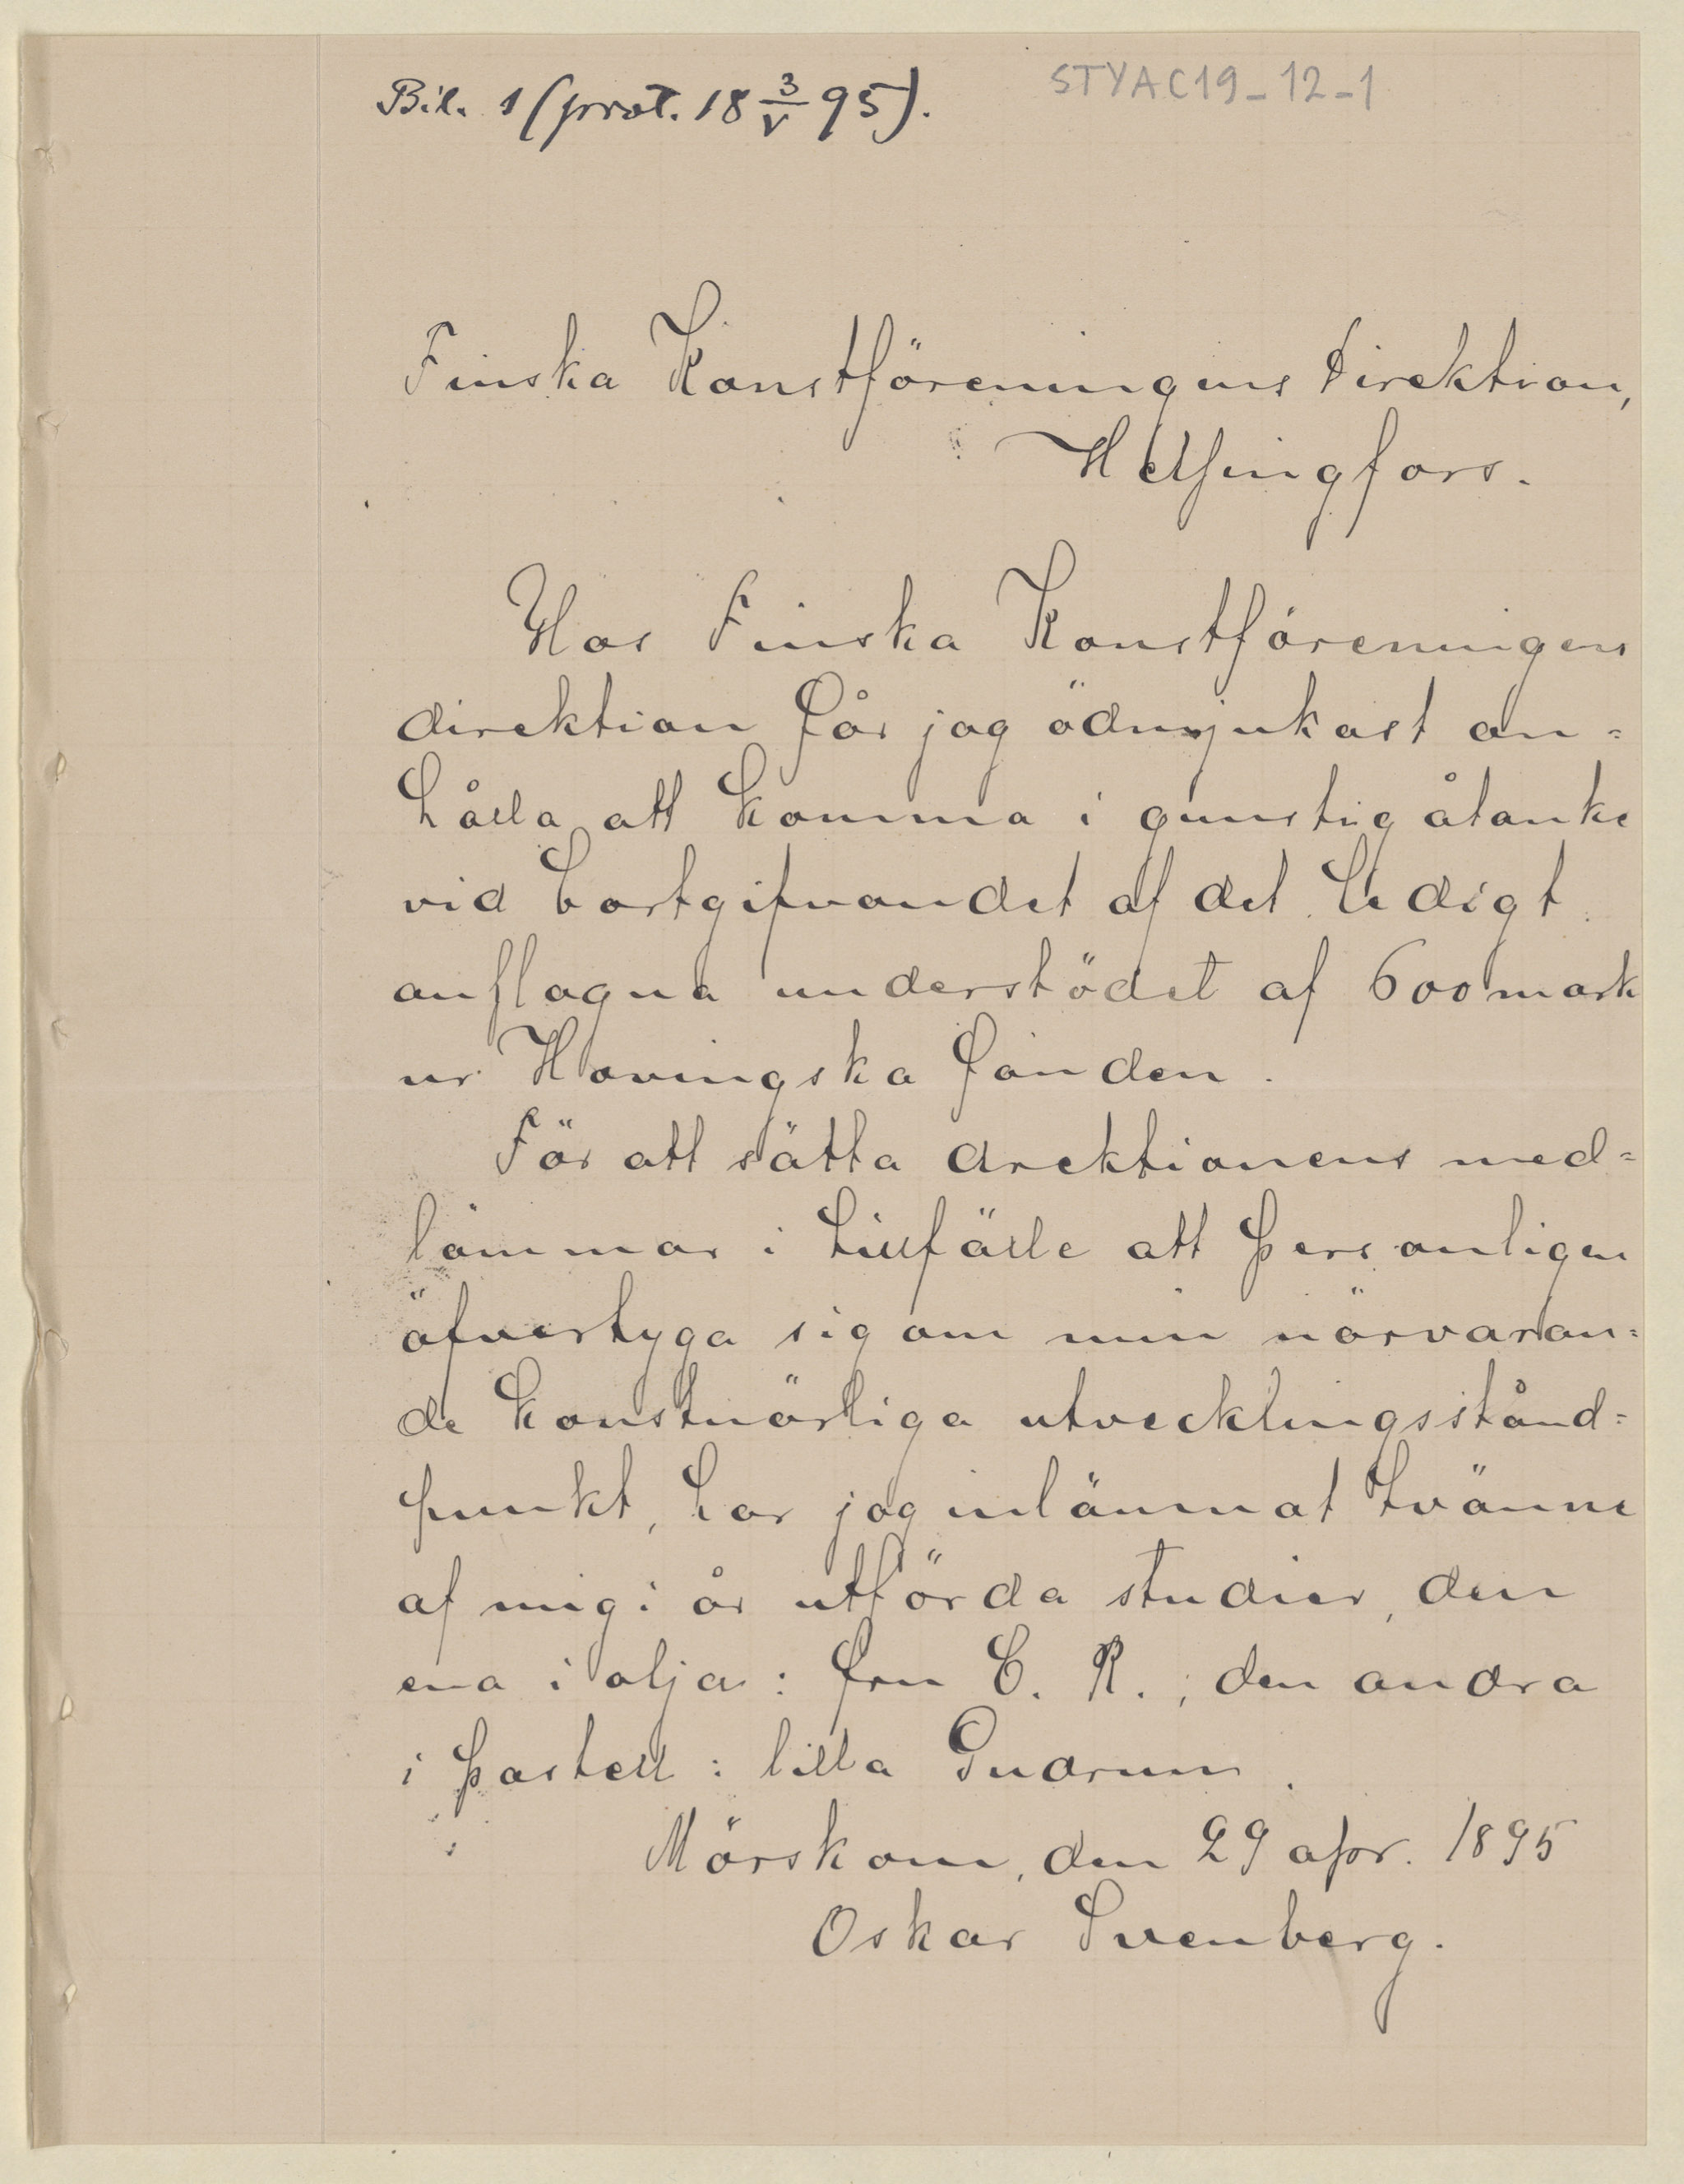 Bil. 1 (prot. 18 3/V 95).
STYAC19-12-1
Finska Konstföreningens Direktion,
Helsingfors.
Hos Finska Konstföreningens
direktion får jag ödmjukast an=
hålla att komma i gunstig åtanke
vid bortgifvandet af det ledigt
anslagna understödet af 600 mark
ur Hovingska fonden.
För att sätta direktionens med=
lemmar i tillfälle att personligen
öfvertyga sig om min närvaran=
de konstnärliga utvecklingsstånd=
punkt, har jag inlämnat tvänne
af mig i år utförda studier, den
ena i olja: fru E. R.; den andra
i pastell: lilla Gudrun.
Mörskom, den 29 apr. 1895
Oskar Svenberg.